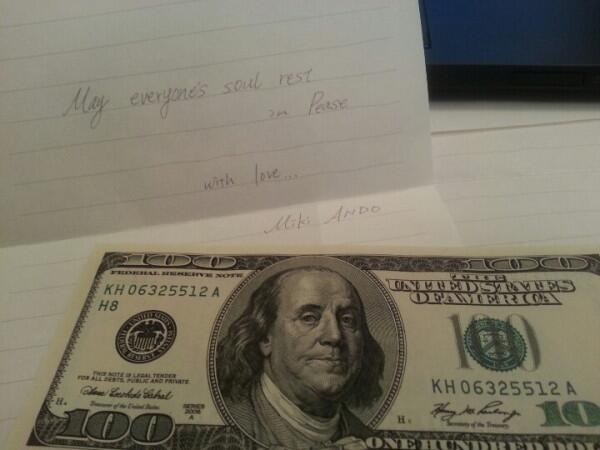 May everyone's soul rest
in Pease
with love...
Miki ANDO
100
100
FEDERAL RESERVE NOTE
THE UNITED STATES
OF AMERICA
KH 06325512 A
H8
100
THIS NOTE IS LEGAL TENDER
FOR ALL DEBTS, PUBLIC AND PRIVATE
KH 06325512 A
Treasurer of the United States
SERIES
2006
A
H
Secretary of the Treasury
10
100
ONE HUNDRED DOL